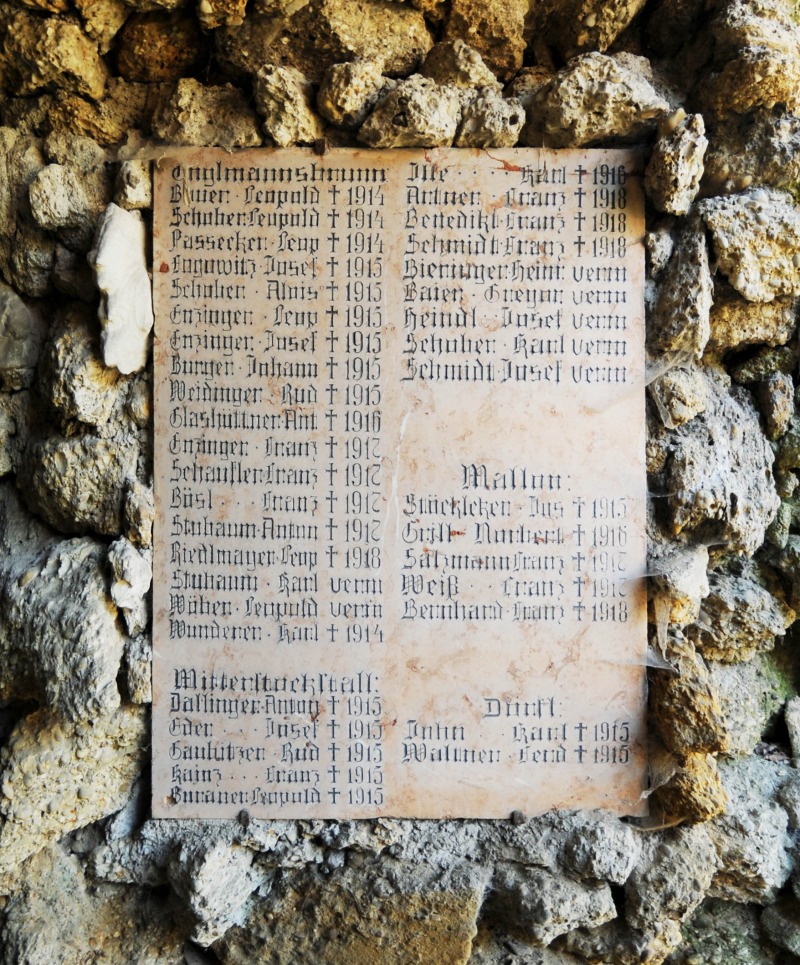 Englmannsbrunn:
Baier · Leopold † 1914
Schober Leopold † 1914
Passecker · Leop † 1914
Schober · Alois † 1915
Enzinger · Leop † 1915
Enzinger · Josef † 1915
Burger · Johann † 1915
Weidinger · Rud † 1915
Glashüttner Ant. † 1916
Enzinger · Franz † 1917
Schaufler Franz † 1917
Bösl · · · Franz † 1917
Stubaum · Anton † 1917
Riedlmayer · Leop † 1918
Stubaum · Karl verm
Weber · Leopold verm
Wunderer · Karl † 1914
Mitterstockstall:
Daflinger · Anton † 1915
Eder · · · Josef † 1915
Rud † 1915
Kainz · · · Franz † 1915
Leopold † 1915
Karl † 1916
Artner · Franz † 1918
Benedikt · Franz † 1918
Schmidt · Franz † 1918
Bieringer Heinr verm
Baier · Gregor verm
Heindl · Josef verm
Schober · Karl verm
Schmidt · Josef verm
Mallon:
Stöckleker · Jos † 1915
Grill · Norbert † 1916
Salzmann Franz † 1917
Weiß · · Franz † 1917
Bernhard · Franz † 1918
Dörfl:
John · · · Karl † 1915
Walmer · Ferd † 1915